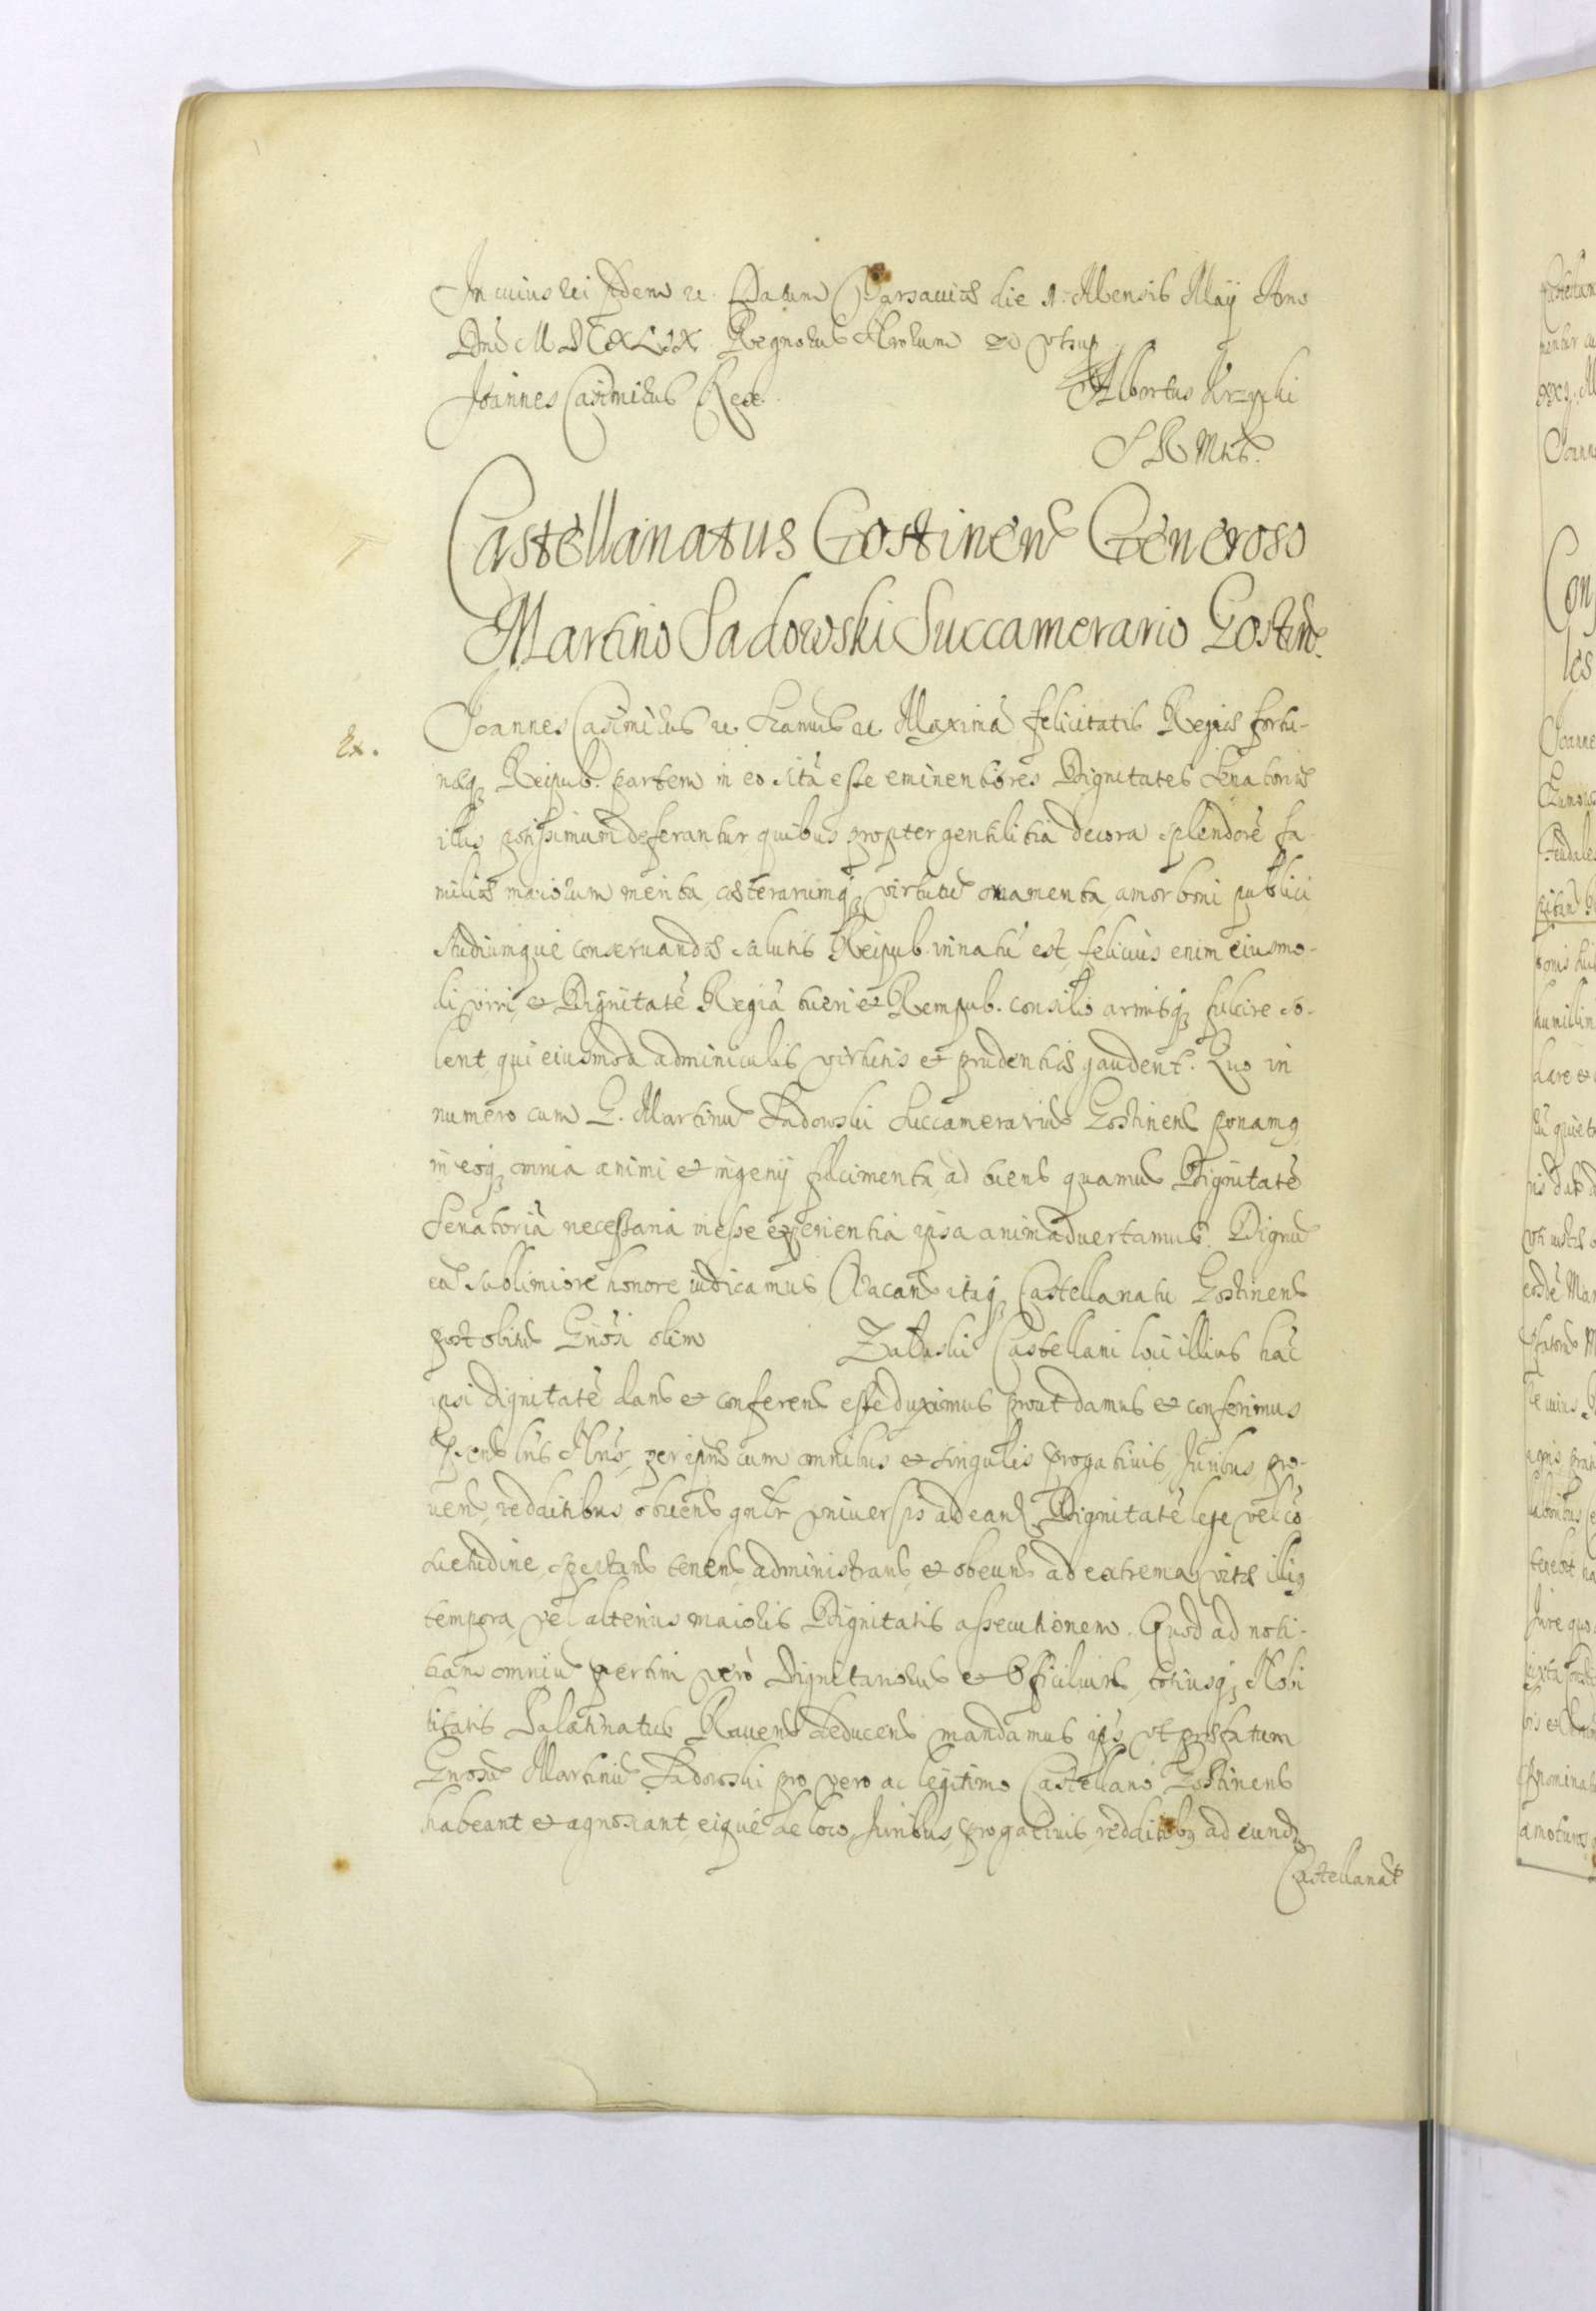 In cuius rei fidem etc. Datum Varsaviæ die 1. Mensis Maÿ Ano
Dni MDCXLIX Regnoru Nrorum etc. utsup
Joannes Casimirus Rex
Albertus Krzycki
S R Mtis.
Castellanatus Gostinens Generoso
Martino Sadowski Succamerario Gostin.
Ex.
Joannes Casimirus etc. Signamus etc. Maximã felicitatis Regiæ fortu-
næq Reipub. partem in eo sitã esse eminentiores Dignitates Senatoriæ
illis potissimum deferantur quibus propter gentilitia decora splendorẽ fa-
miliæ maiorum merita, cæterarumq virtutũ ornamenta, amor boni publici
studiumque conservandæ salutis Reipub. innatũ est, felicius enim eiusmo-
di viri, et Dignitatẽ Regiã tueri et Rempub. consilio armisq fulcire so-
lent, qui eiusmodi adminiculis virtutis et prudentiæ gaudent. Quo in
numero cum G. Martinũ Sadowski Succamerariũ Gostinens ponamq
in eoq omnia animi et ingenÿ fulcimenta, ad tuend quamvis Dignitatẽ
Senatoriã necessaria inesse experientia ipsa animadvertamus. Dignũ
eũ sublimiorẽ honore iudicamus Vacan itaq Castellanatu Gostinens
post obitũ Gnosi olim Zaluski Castellani loci illius hãc
ipsi dignitatẽ dand et conferend esse duximus prout damus et conferimus
Psentibus lris Nris, per ipsũ cum omnibus et singulis progativis, Juribus, pro-
uen, redditibus obuend gnlr universis ad eand Dignitatẽ lege vel cõ-
suetudine, spectand tenend, administrand, et obeund ad extrema vitæ illiq
tempora, vel alterius maioris Dignitatis assecutionem. Quod ad noti-
tiam omniũ pertim verò Dignitariorũ et Officiliuns, totiusq Nobi
litatis Palatinatus Rauens deducend mandamus ips, ut præfatum
Gnosũ Martinũ Sadowski pro vero ac legitimo Castellano Gostinens
habeant et agnoscant, eique de loco, Juribus, progativis, redditibq ad eundẽ
Castellanat